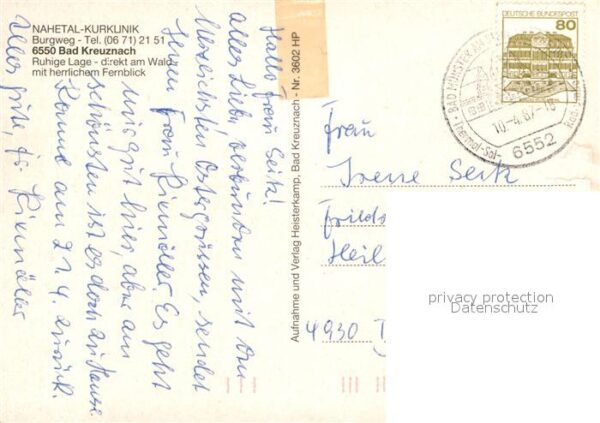 NAHETAL-KURKLINIK
Burgweg - Tel. (06 71) 21 51
6550 Bad Kreuznach
Ruhige Lage - direkt am Wald
mit herrlichem Fernblick
Hallo Frau Seitz!
alles Liebe verbunden mit den
herzlichsten Ostergrüssen, sendet
Ihnen Frau Es geht
mir gut hier, aber am
schönsten ist es doch zu Hause
Komme am 21.4. zurück.
Alles gute, Ihre
Aufnahme und Verlag Heisterkamp, Bad Kreuznach - Nr. 3602 HP
DEUTSCHE BUNDESPOST
80
BAD MÜNSTER AM
10.-4.87.-16
Thermal-Sol-
6552
Frau
Irene Seitz
Heil
4930
privacy protection
Datenschutz